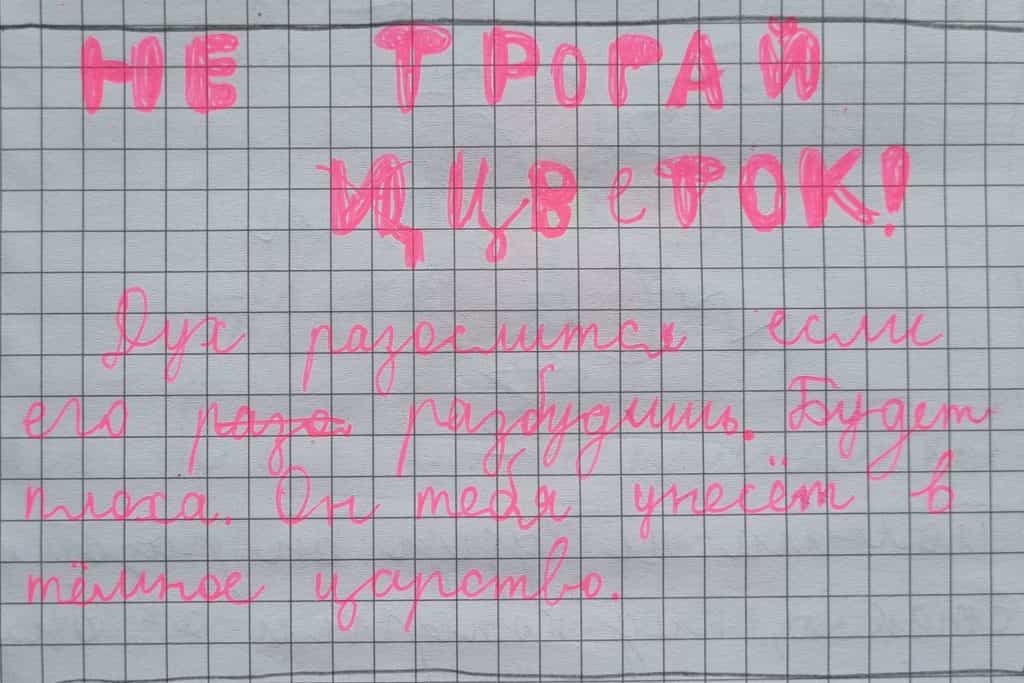 НЕ ТРОГАЙ
ЦЦВЕТОК!
Дух разослится если
его разо разбудишь. Будет
плоха. Он тебя унесёт в
тёмное царство.